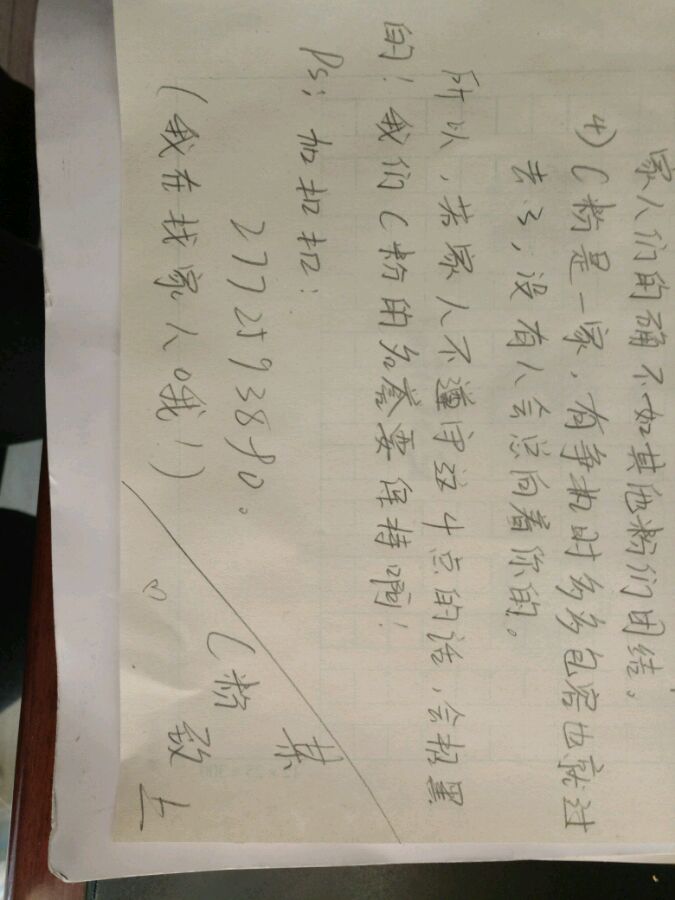 家人们的确不如其他粉们团结。
4) C粉是一家，有争执时多多包容也就过
去了，没有人会总向着你的。
所以，若家人不遵守这4点的话，会招黑
的！我们C粉的名誉要保持啊！
Ps：加扣扣：
2772593890。
(我在找家人哦！)
某
C粉
致上